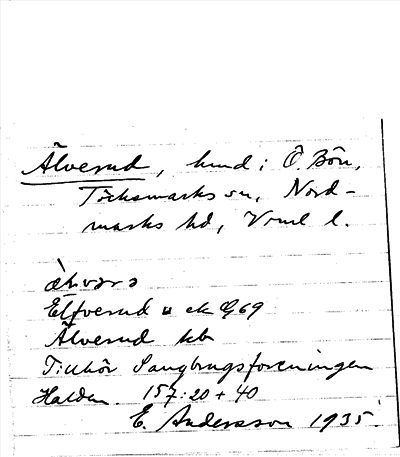 Älverud, hmd i Ö. Bön,
Töcksmarks sn, Nord-
marks hd, Vrml l.
älvərə
Elfverud ek G69
Älverud kb
Tillhör Saugbrugsforeningen
Halden. 157:20 + 40
E. Andersson 1935.